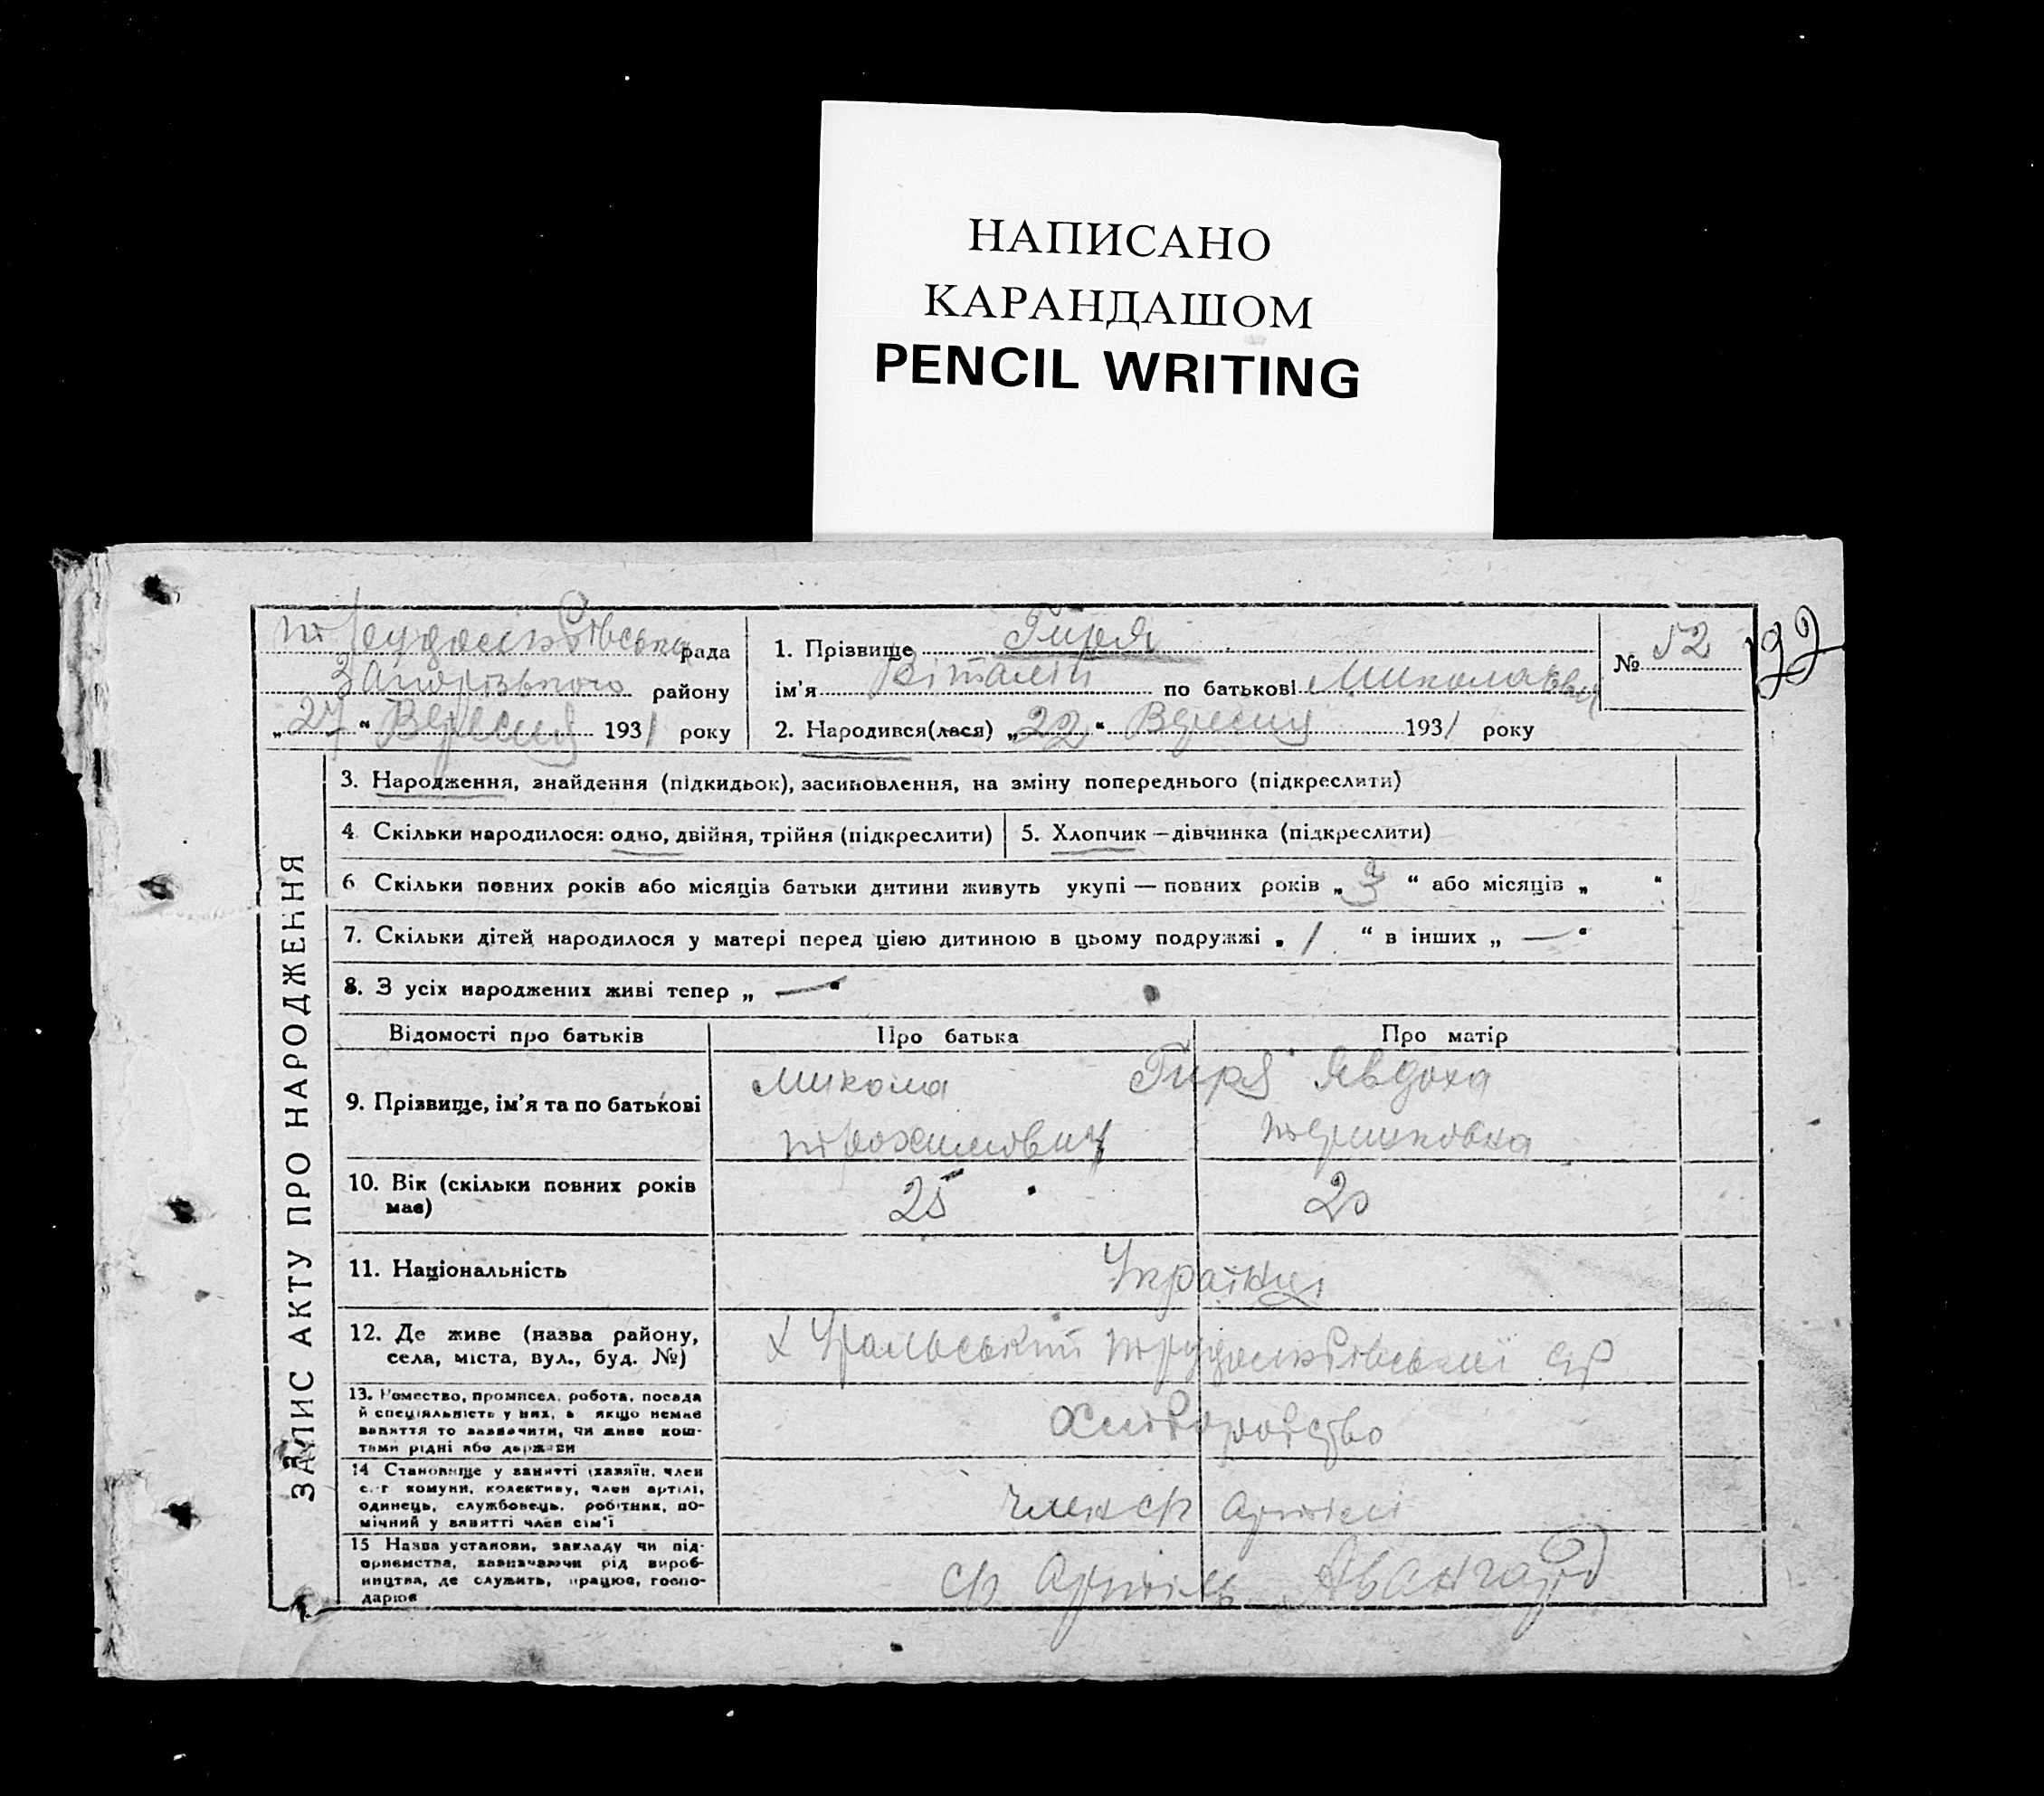 НАПИСАНО
КАРАНДАШОМ
PENCIL WRITING
рада
Запорізького району
„27“ Вересня 1931 року
1. Прізвище Гиря
ім’я Віталій по батькові Миколаєвич
2. Народився(лася) „22“ Вересня 1931 року
№ 52
92
ЗАПИС АКТУ ПРО НАРОДЖЕННЯ
3. Народження, знайдення (підкидьок), засиновлення, на зміну попереднього (підкреслити)
4 Скільки народилося: одно, двійня, трійня (підкреслити)
5. Хлопчик—дівчинка (підкреслити)
6 Скільки повних років або місяців батьки дитини живуть укупі — повних років „ “ або місяців „ “
7. Скільки дітей народилося у матері перед цією дитиною в цьому подружжі „ 1 “ в інших „ — “
8. З усіх народжених живі тепер „ — “
Відомості про батьків
Про батька
Про матір
9. Прізвище, ім’я та по батькові
Микола Гиря Явдоха
Трохимович
10. Вік (скільки повних років
має)
25
20
11. Національність
Українці
12. Де живе (назва району,
села, міста, вул., буд. №)
х Уральський
13. Ремество, промисел, робота, посада
й спеціяльність у них, а якщо немає
заняття то зазначити, чи живе кош-
тами рідні або держави
Хліборобство
14 Становище у занятті (хазяїн, член
с.-г комуни, колективу, член артілі,
одинець, службовець, робітник, по-
мічний у занятті член сім’ї
член сг артілі
15 Назва установи, закладу чи під-
приємства, зазначаючи рід вироб-
ництва, де служить, працює, госпо-
дарює
сг Артіль Авангард